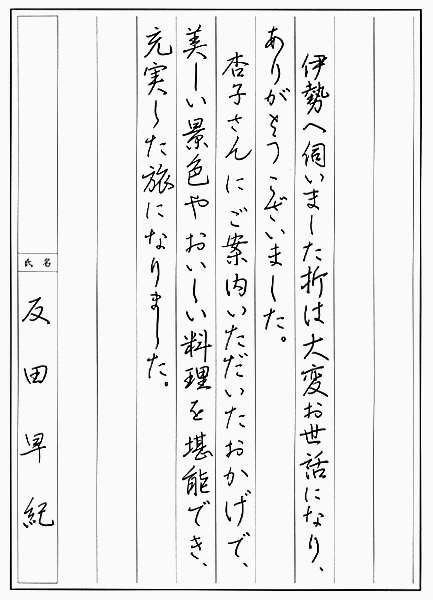 伊勢へ伺いました折は大変お世話になり、
ありがとうございました。
杏子さんにご案内いただいたおかげで、
美しい景色やおいしい料理を堪能でき、
充実した旅になりました。
氏名
反田早紀